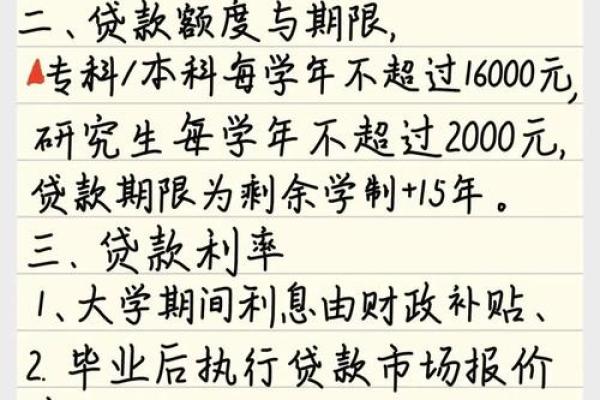 二、贷款额度与期限,
专科/本科每学年不超过16000元,
研究生每学年不超过2000元,
贷款期限为剩余学制+15年。
三、贷款利率
1、大学期间利息由财政补贴、
2. 毕业后执行贷款市场报价